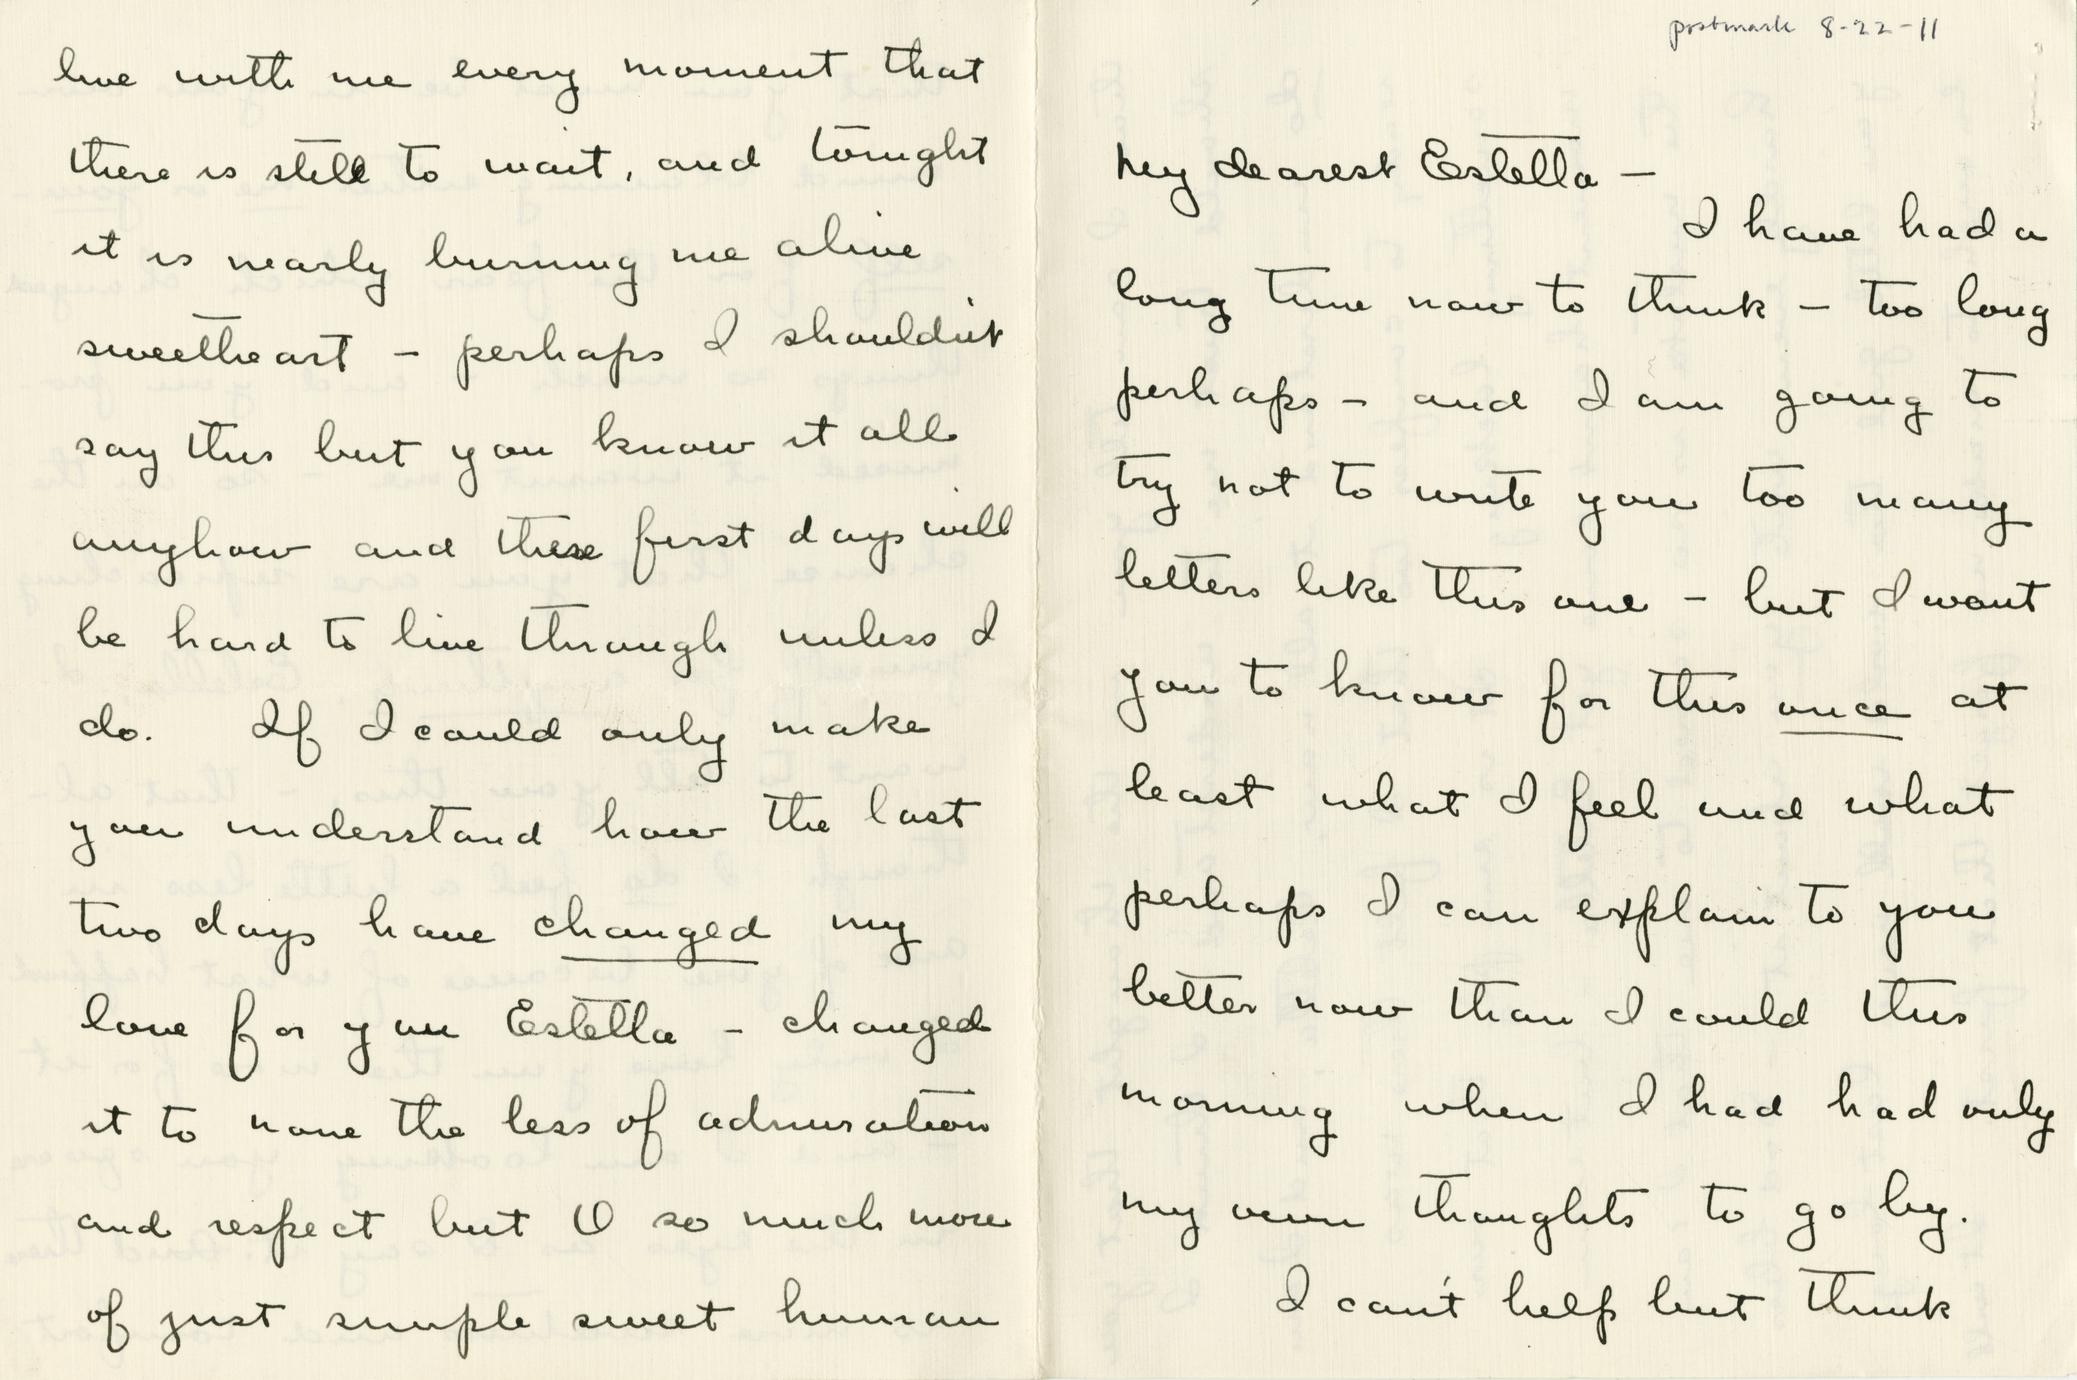 postmark 8-22-11
My dearest Estella —
I have had a
long time now to think — too long
perhaps — and I am going to
try not to write you too many
letters like this one — but I want
you to know for this once at
least what I feel and what
perhaps I can explain to you
better now than I could this
morning when I had had only
my own thoughts to go by.
I can't help but think
live with me every moment that
there is still to wait, and tonight
it is nearly burning me alive
sweetheart — perhaps I shouldn't
say this but you know it all
anyhow and these first days will
be hard to live through unless I
do. If I could only make
you understand how the last
two days have changed my
love for you Estella — changed
it to none the less of admiration
and respect but O so much more
of just simple sweet human